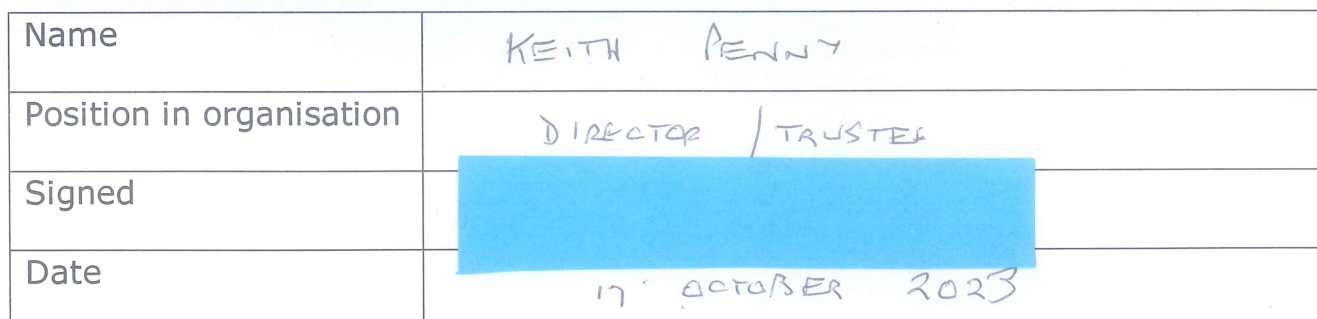 Name KEITH PENNY
Position in organisation DIRECTOR / TRUSTEE
Signed
Date 17 OCTOBER 2023